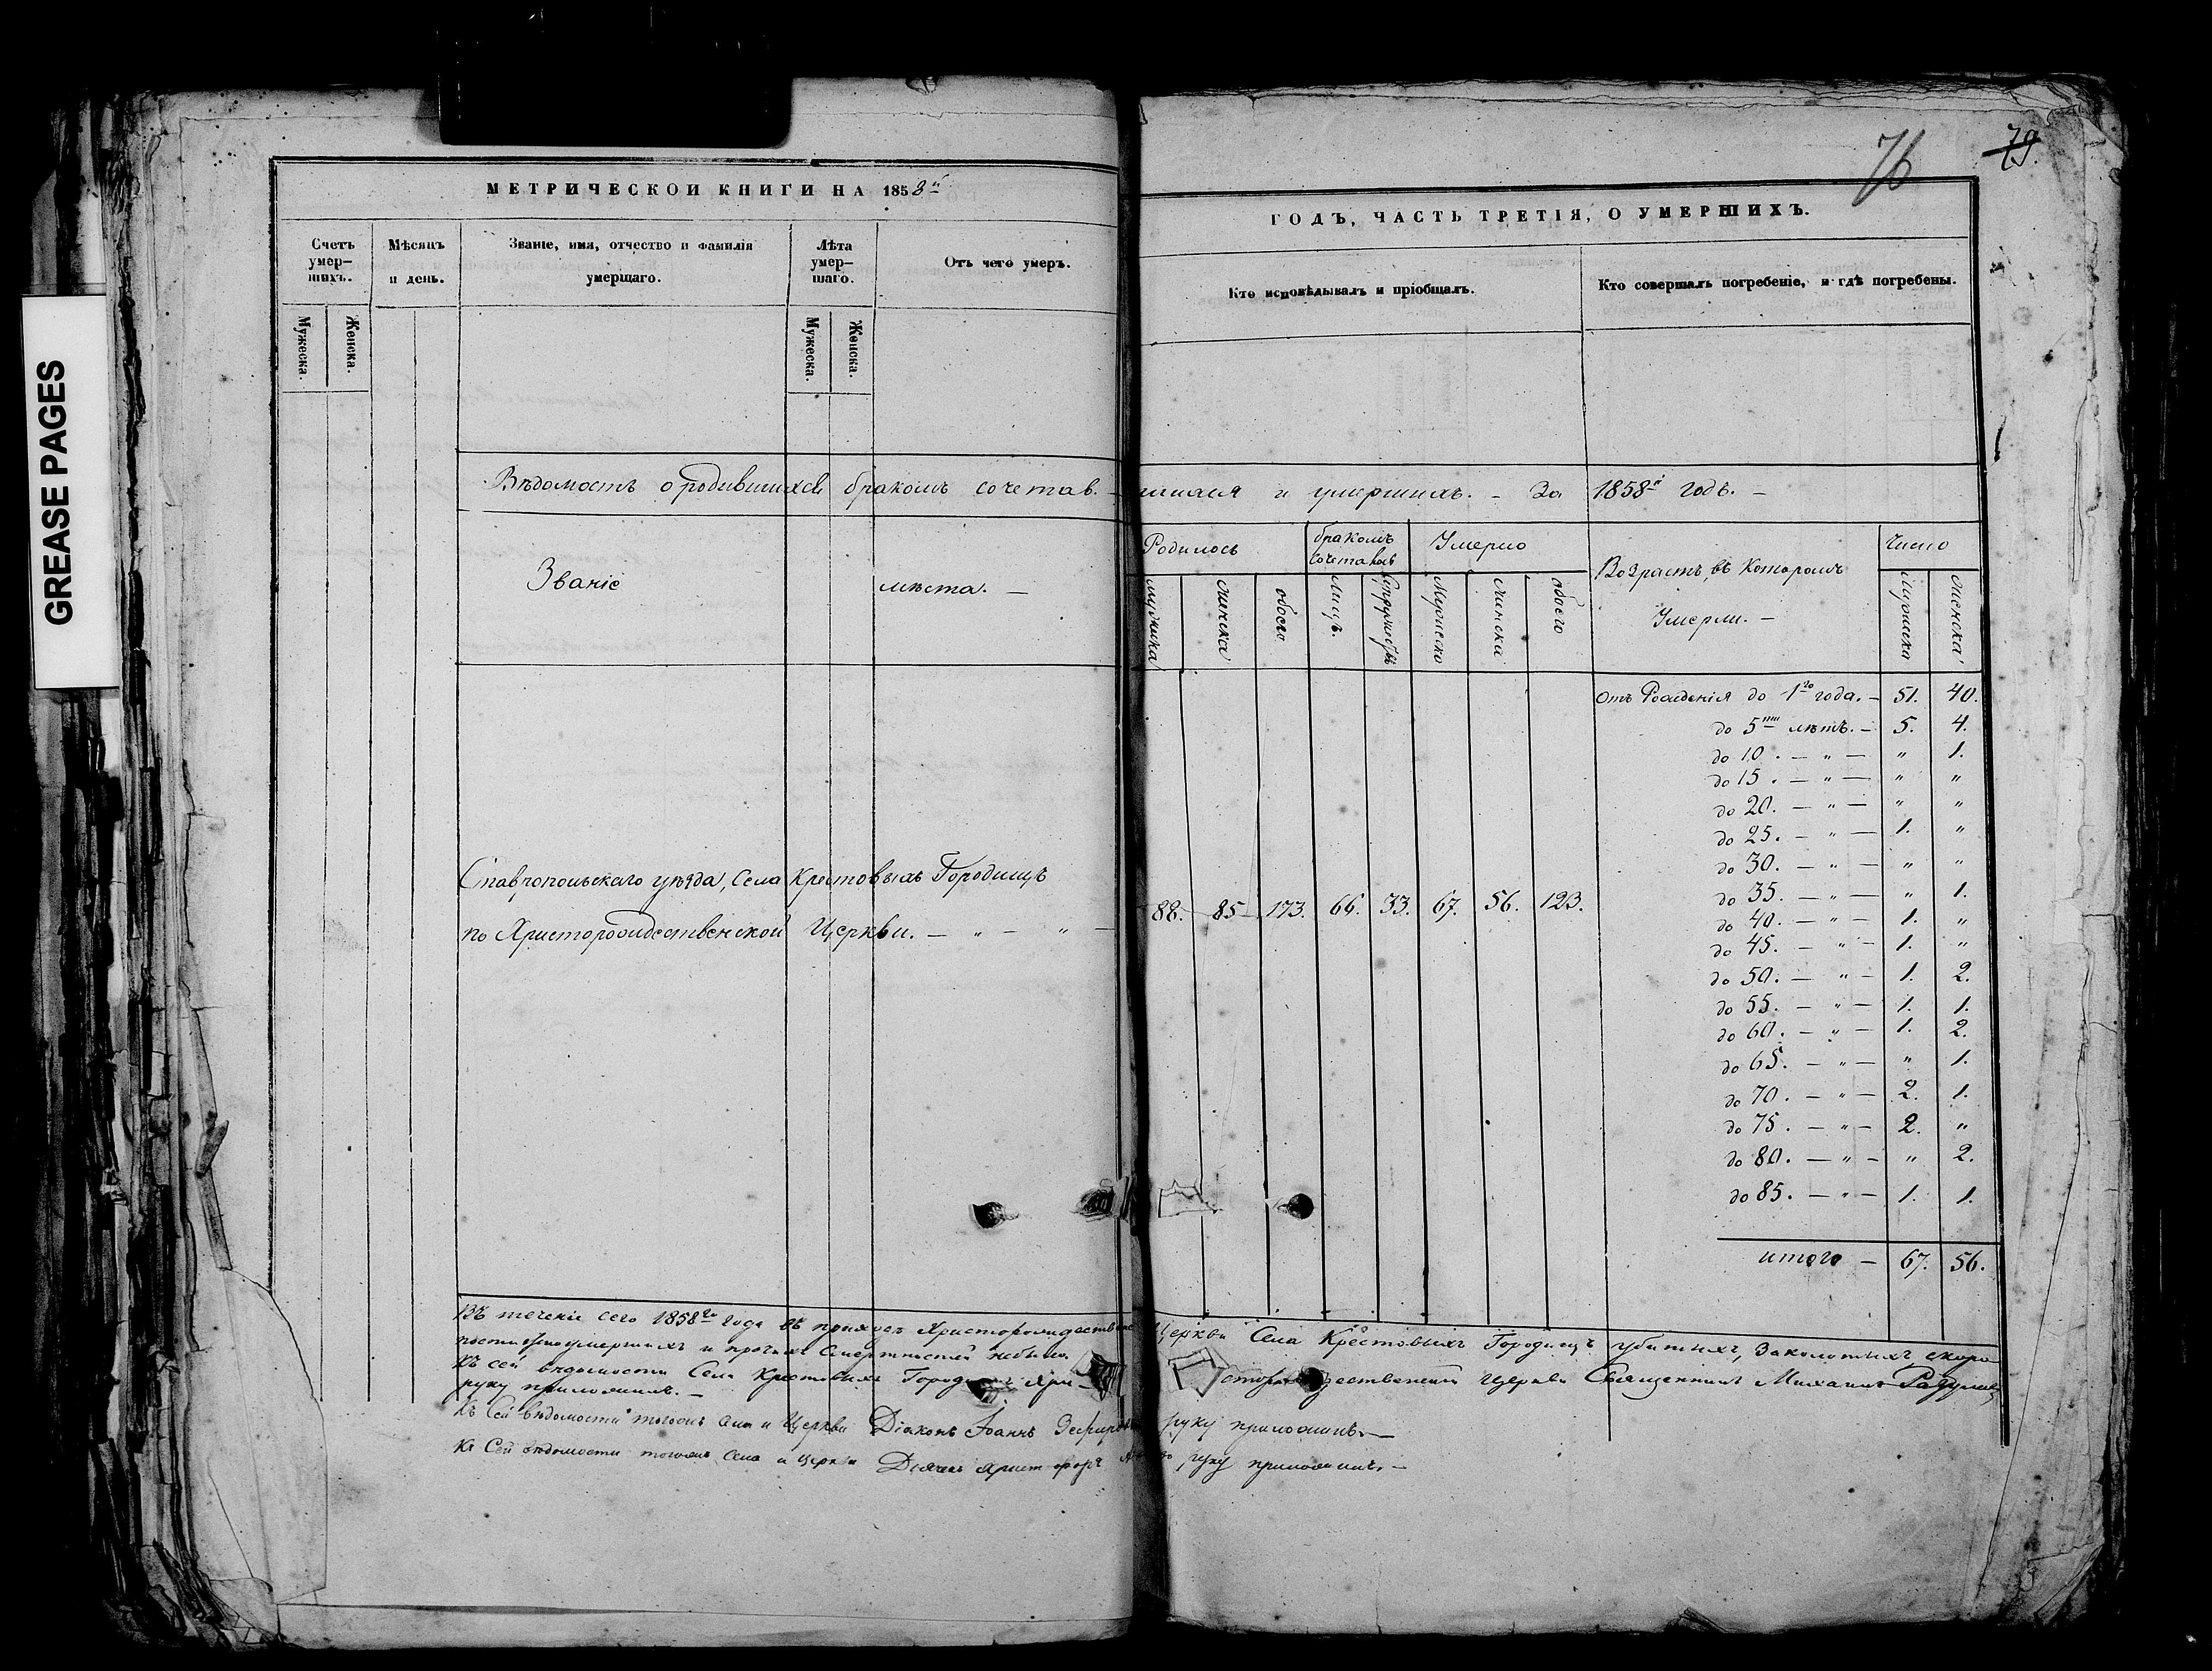 76
79.
GREASE PAGES
МЕТРИЧЕСКОЙ КНИГИ НА 1858й
ГОДЪ, ЧАСТЬ ТРЕТІЯ, О УМЕРШИХЪ.
Счетъ умер-
шихъ.
Мѣсяцъ
и день.
Званіе, имя, отчество и фамилія
умершаго.
Лѣта
умер-
шаго.
Отъ чего умеръ.
Кто исповѣдывалъ и пріобщалъ.
Кто совершалъ погребеніе, и гдѣ погребены.
Мужеска.
Женска.
Мужеска.
Женска.
Вѣдомость о родившихся бракомъ сочетав-шихся и умершихъ. - За 1858й годъ. -
Званіе мѣста. -
Родилось
бракомъ
сочеталось
Умерло
Возрастъ, въ которомъ
Умерли. -
Число
мужеска
женска
обоего
Лицъ.
Супружествъ
Мужеска
женска
обоего
Мужеска
женска
Ставропольскаго уѣзда, Села Крестовыхъ Городищъ
по Христорождественской Церкви. - „ - „ -
88. 85 173. 66. 33. 67. 56. 123.
отъ Рожденія до 1го года. - 51. 40.
до 5ти лѣтъ. - 5. 4.
до 10. - „ - „ 1.
до 15. - „ - „ „
до 20. - „ - „ „
до 25. - „ - 1. „
до 30. - „ - „ „
до 35. - „ - „ 1.
до 40. - „ - 1. „
до 45. - „ - 1. „
до 50. - „ - 1. 2.
до 55. - „ - 1. 1.
до 60. - „ - 1. 2.
до 65. - „ - „ 1.
до 70. - „ - 2. 1.
до 75. - „ - 2. „
до 80. - „ - „ 2.
до 85. - „ - 1. 1.
итого - 67. 56.
Въ теченіе сего 1858го года въ приходѣ Христорождественс Церкви Села Крестовыхъ Городищъ убитыхъ, заколотыхъ скоро
постижно умершихъ и прочихъ смертностей небыло.
Къ сей вѣдомости Села Крестовыхъ Городищъ Хри-сторождественской Церкви Священникъ Михаилъ
руку приложилъ. -
Къ Сей вѣдомости тогожъ Села и Церкви Діаконъ Іоаннъ руку приложилъ. -
Къ Сей вѣдомости тогожъ Села и Церкви Дьячекъ Христофоръ руку приложилъ. -